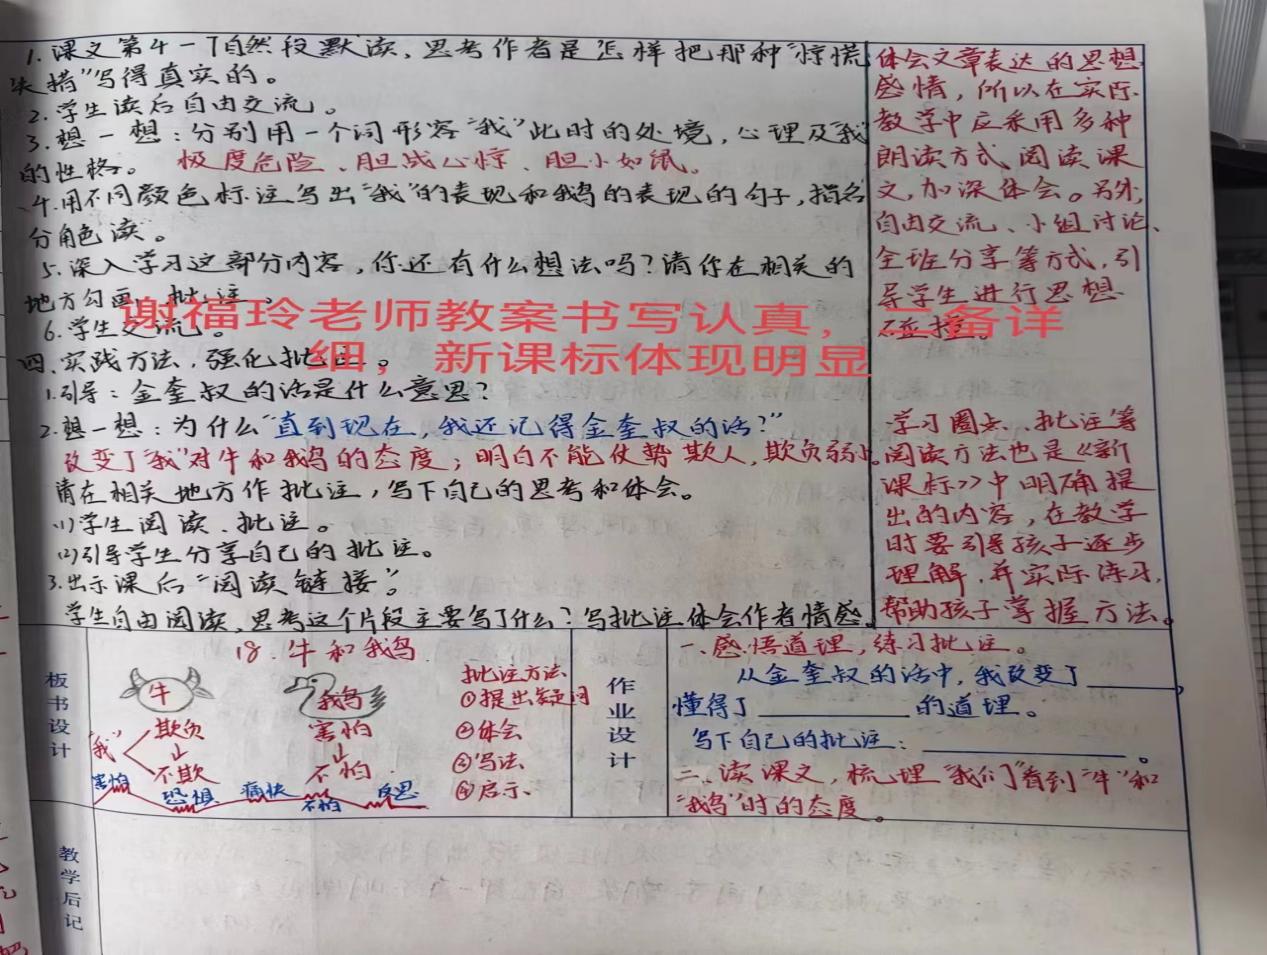 1.课文第4-7自然段默读,思考作者是怎样把那种"惊慌
失措"写得真实的。
2.学生读后自由交流。
3.想一想:分别用一个词形容"我"此时的处境,心理及"我"
的性格。 极度危险、胆战心惊、胆小如鼠。
4.用不同颜色标注写出"我"的表现和鹅的表现的句子,指名
分角色读。
5.深入学习这部分内容,你还有什么想法吗?请你在相关的
地方勾画、批注。
6.学生交流。
四、实践方法,强化批注。
1.引导:金奎叔的话是什么意思?
2.想一想:为什么"直到现在,我还记得金奎叔的话?"
改变了"我"对牛和鹅的态度;明白不能仗势欺人,欺负弱小。
请在相关地方作批注,写下自己的思考和体会。
(1)学生阅读、批注。
(2)引导学生分享自己的批注。
3.出示课后"阅读链接"。
学生自由阅读,思考这个片段主要写了什么?写批注体会作者情感。
体会文章表达的思想
感情,所以在实际
教学中应采用多种
朗读方式阅读课
文,加深体会。另外,
自由交流、小组讨论、
全班分享等方式,引
导学生进行思想
碰撞。
学习圈点、批注等
阅读方法也是《新
课标》中明确提
出的内容,在教学
时要引导孩子逐步
理解,并实际练习,
帮助孩子掌握方法。
谢福玲老师教案书写认真,二备详
细,新课标体现明显
板书设计
18.牛和鹅
牛
鹅
"我"
欺负
↓
不欺
害怕
↓
不怕
害怕
恐惧
痛快
不怕
反思
批注方法
①提出疑问
②体会
③写法
④启示
作业设计
一、感悟道理,练习批注。
从金奎叔的话中,我改变了________,
懂得了________的道理。
写下自己的批注:________。
二、读课文,梳理"我们"看到"牛"和
"鹅"时的态度。
教学后记